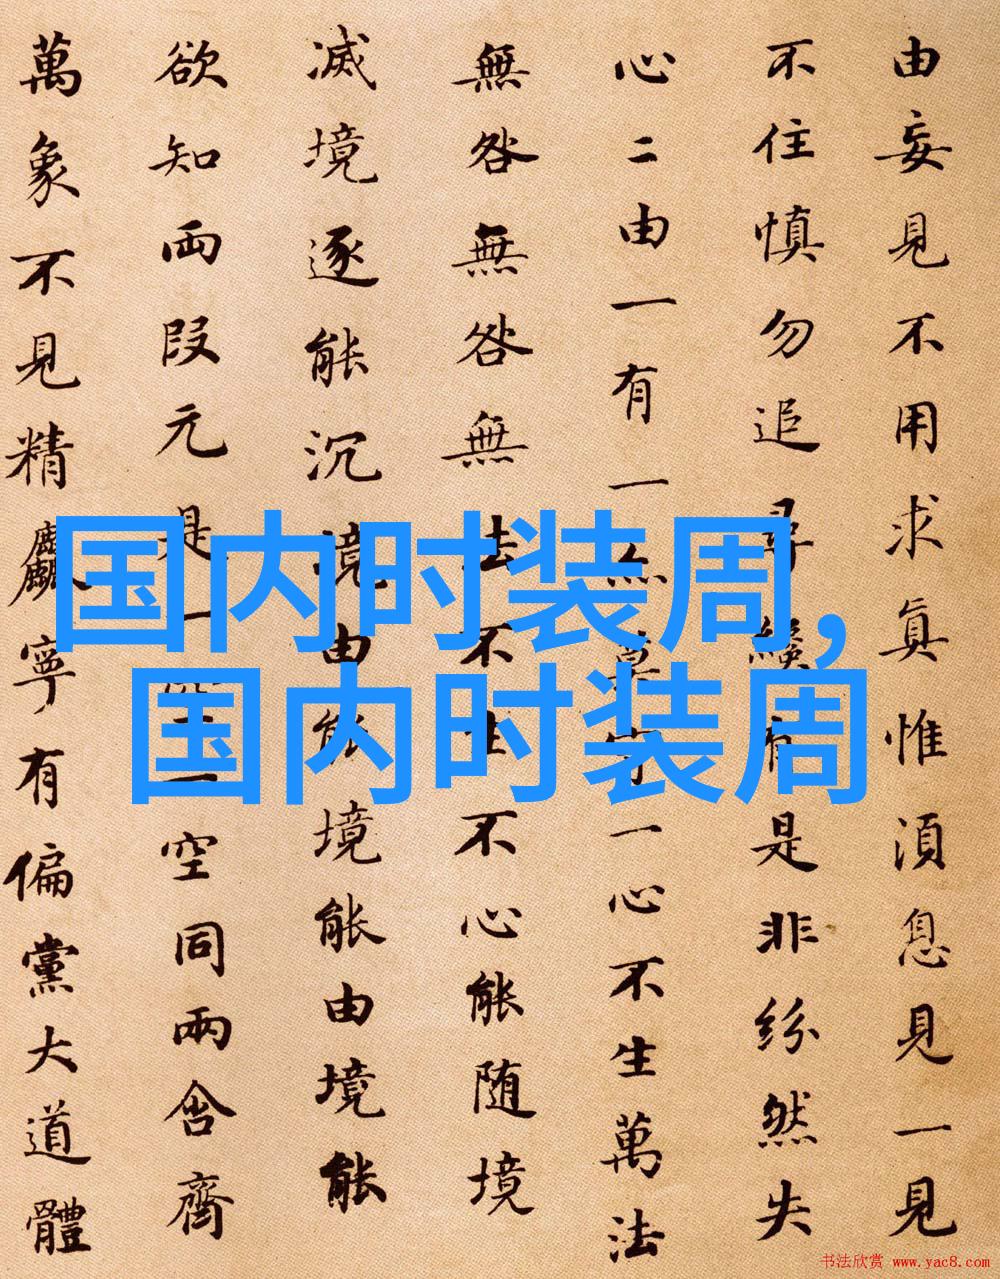 由妄見不用求眞惟湏息見一見
不住慎勿追尋纔有是非紛然失
心二由一有一亦莫守一心不生萬法
無咎無咎無法不生不心能随境
滅境逐能沉境由能境能由境能
欲知両段元是一空一空同兩含齊
萬象不見精麤寧有偏黨大道體
国内时装周,
国内时装周
书法欣赏 www.yac8.com